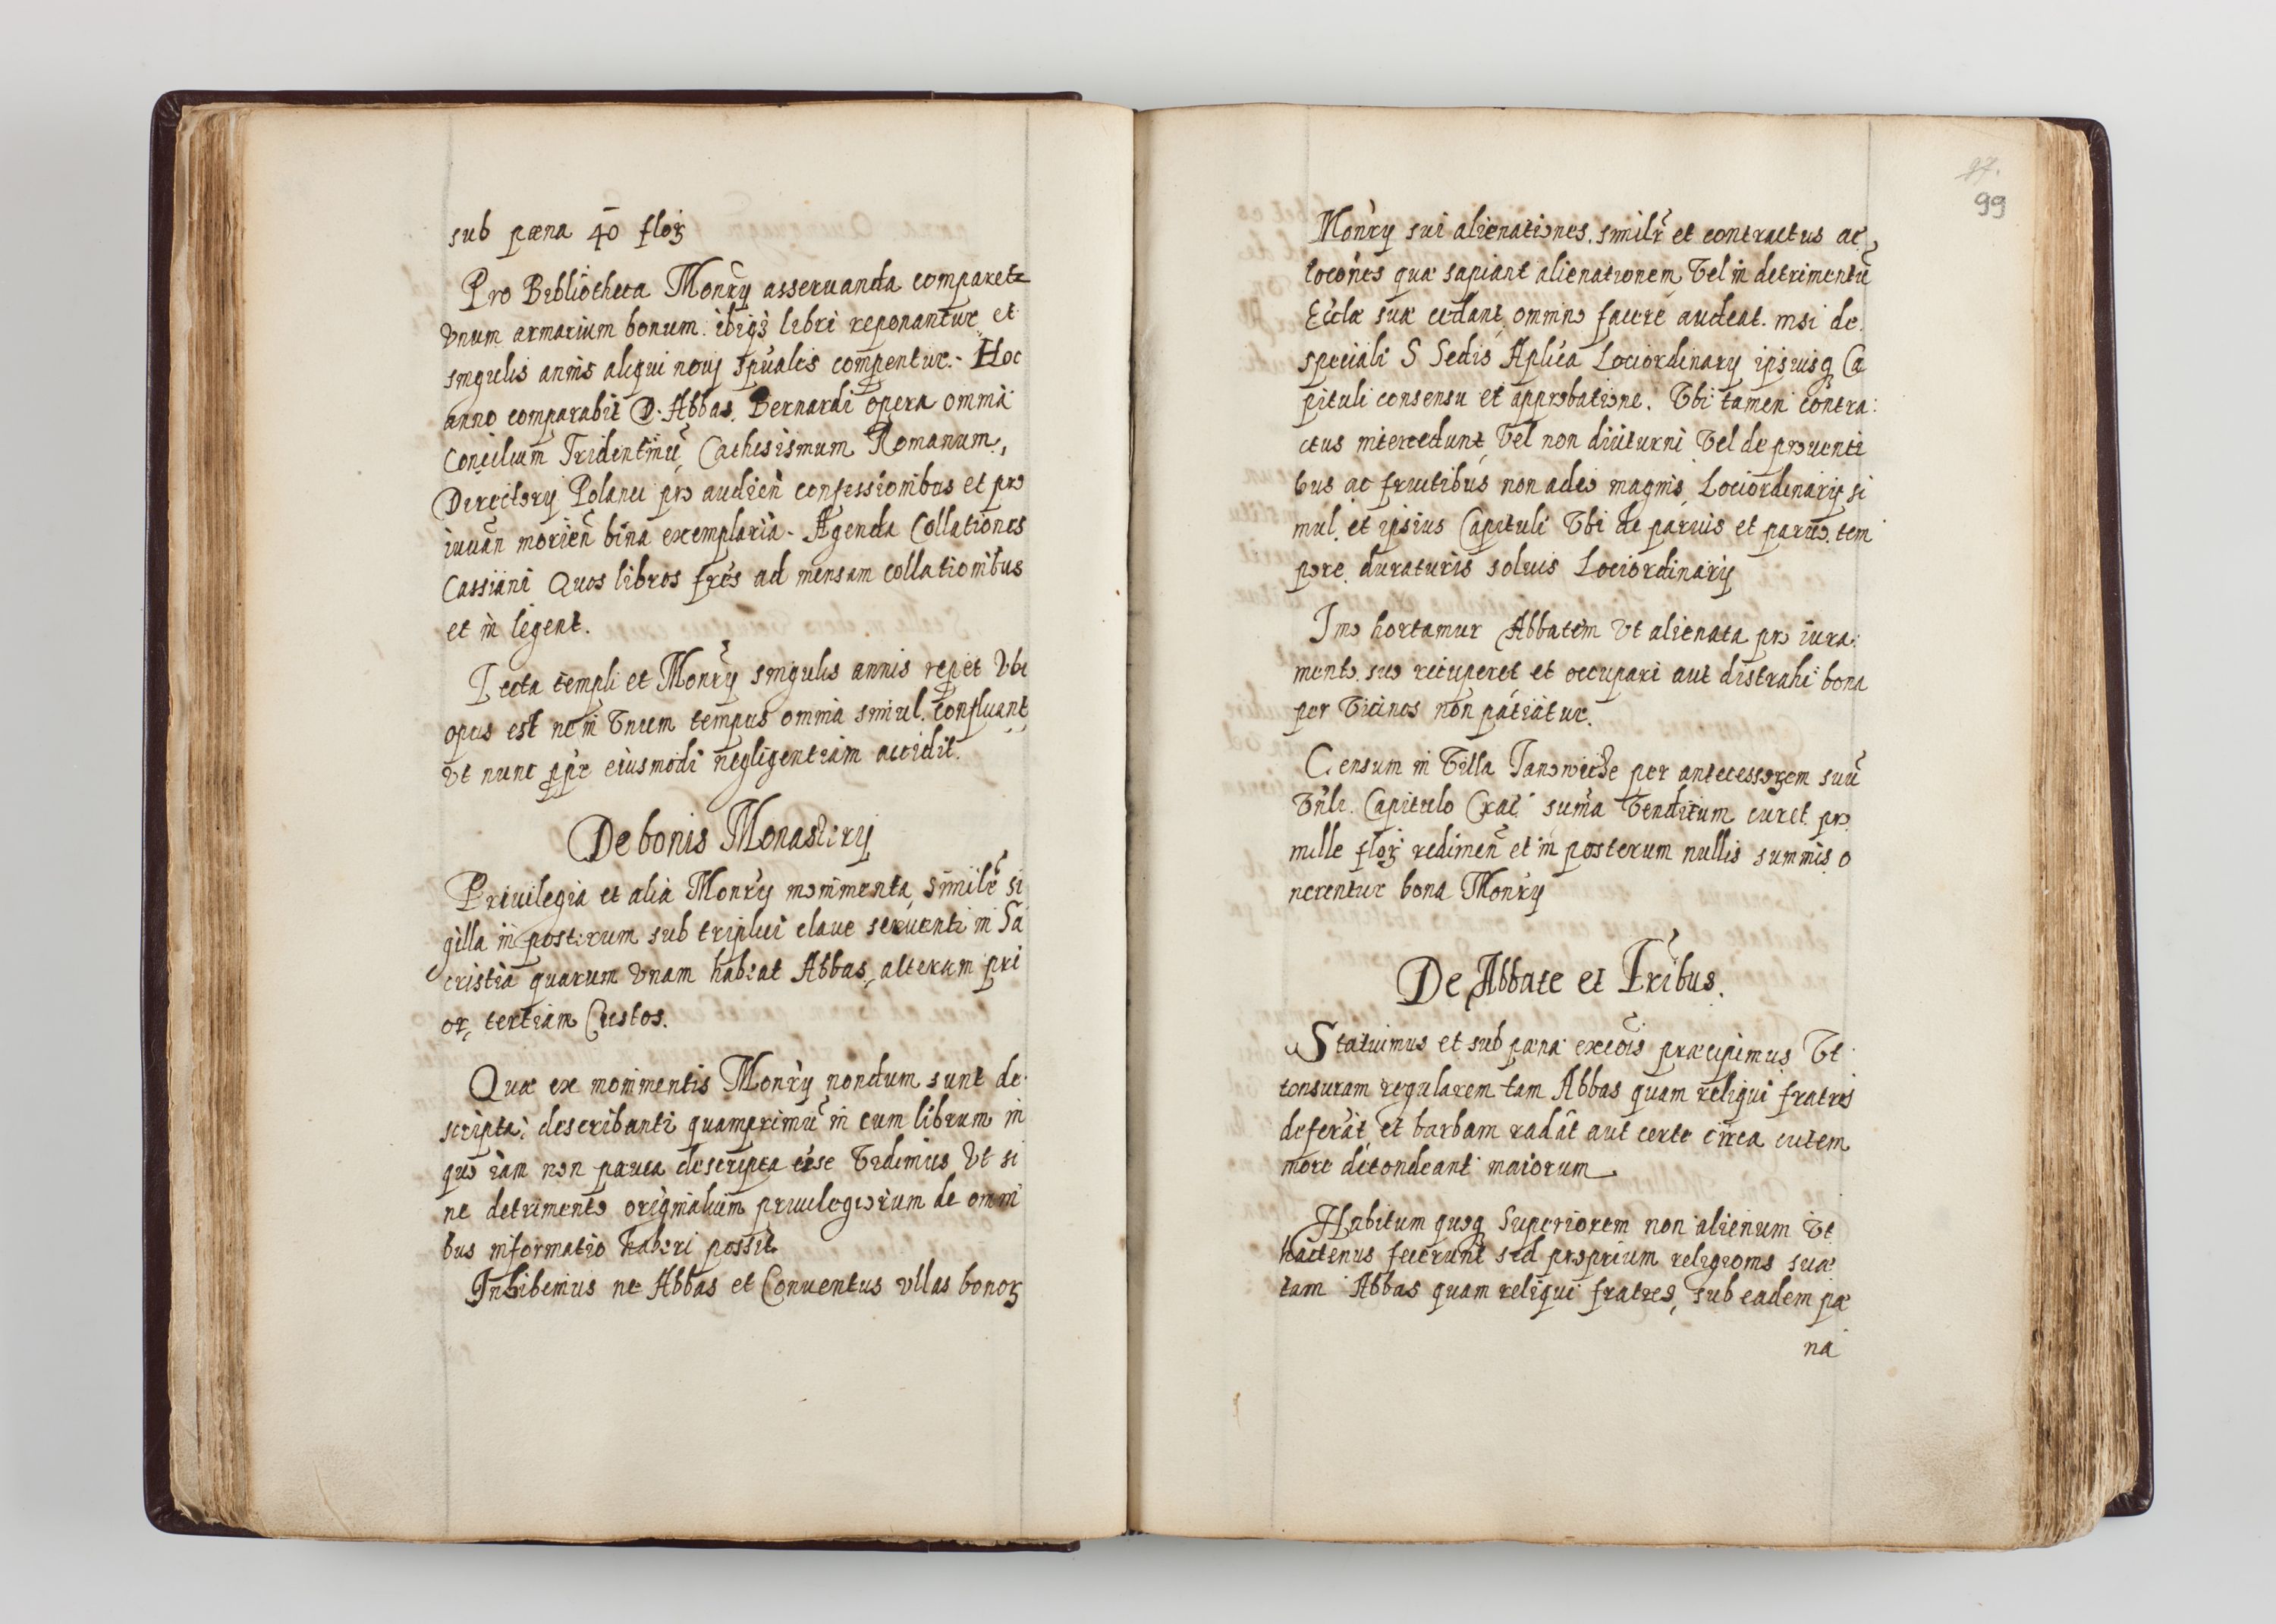 sub pœna 40 floꝝ
Pro Bibliotheca Monrÿ asseruanda comparet
vnum armarium bonum. ibiqꝫ libri reponantur et
singulis annis aliqui nouj spũales compentur. Hoc
anno comparabit D. Abbas. Bernardi opera omnia
Concilium Tridentinũ, Cathesismum Romanum,
Directorÿ Polanci pro audień confessionibus et pro
iuuań morień bina exemplaria. Agenda Collationes
Cassiani Quos libros frẽs ad mensam collationibus
et in legent.
Tecta templi et Monrÿ singulis annis repet vbi
opus est ne in vnum tempus omnia simul confluant
vt nunc ppr eiusmodi negligentiam accidit.
De bonis Monasterÿ
Priuilegia et alia Monrÿ monimenta, similr si
gilla in posterum sub triplici claue seruent in Sa
cristia quarum vnam habeat Abbas, alteram pri
or, tertiam Custos.
Quæ ex monimentis Monrÿ nondum sunt de
scripta, describant quamprimũ in eum librum in
quo iam non pauca descripta esse vidimus vt si
ne detrimento originalium priuilegiorum de omni
bus informatio haberi possit.
Inhibemus ne Abbas et Conuentus vllas bonoꝝ
97.
99
Monrÿ sui alienationes. similr et contractus ac
locoñes quæ sapiant alienationem vel in detrimentũ
Ecclæ suæ cedant, omnino facere audeat. nisi de
speciali S Sedis Aplica Lociordinarÿ ipsiusq Ca
pituli consensu et approbatione. Vbi tamen contra
ctus intercedunt, vel non diuturni vel de prouenti
bus ac fructibus non adeo magnis, Lociordinarÿ si
mul. et ipsius Capituli Vbi de paruis et paruo tem
pore duraturis soluis Lociordinarÿ
Imo hortamur Abbatem vt alienata pro iura
mento suo recuperet et occupari aut distrahi bona
per vicinos non patiatur.
Censum in villa Janowiche per antecessorem suũ
Vñle. Capitulo Crac suma venditum curet pro
mille floꝝ redimeń et in posterum nullis summis o
nerentur bona Monrÿ
De Abbate et Fribus.
Statuimus et sub pæna excõis præcipimus Vt
tonsuram regularem tam Abbas quam reliqui fratres
deferãt et barbam radãt aut certe circa cutem
more detondeant maiorum
Habitum quoq superiorem non alienum vt
hactenus fecerunt sed proprium religionis suæ
tam Abbas quam reliqui fratres, sub eadem pæ
na